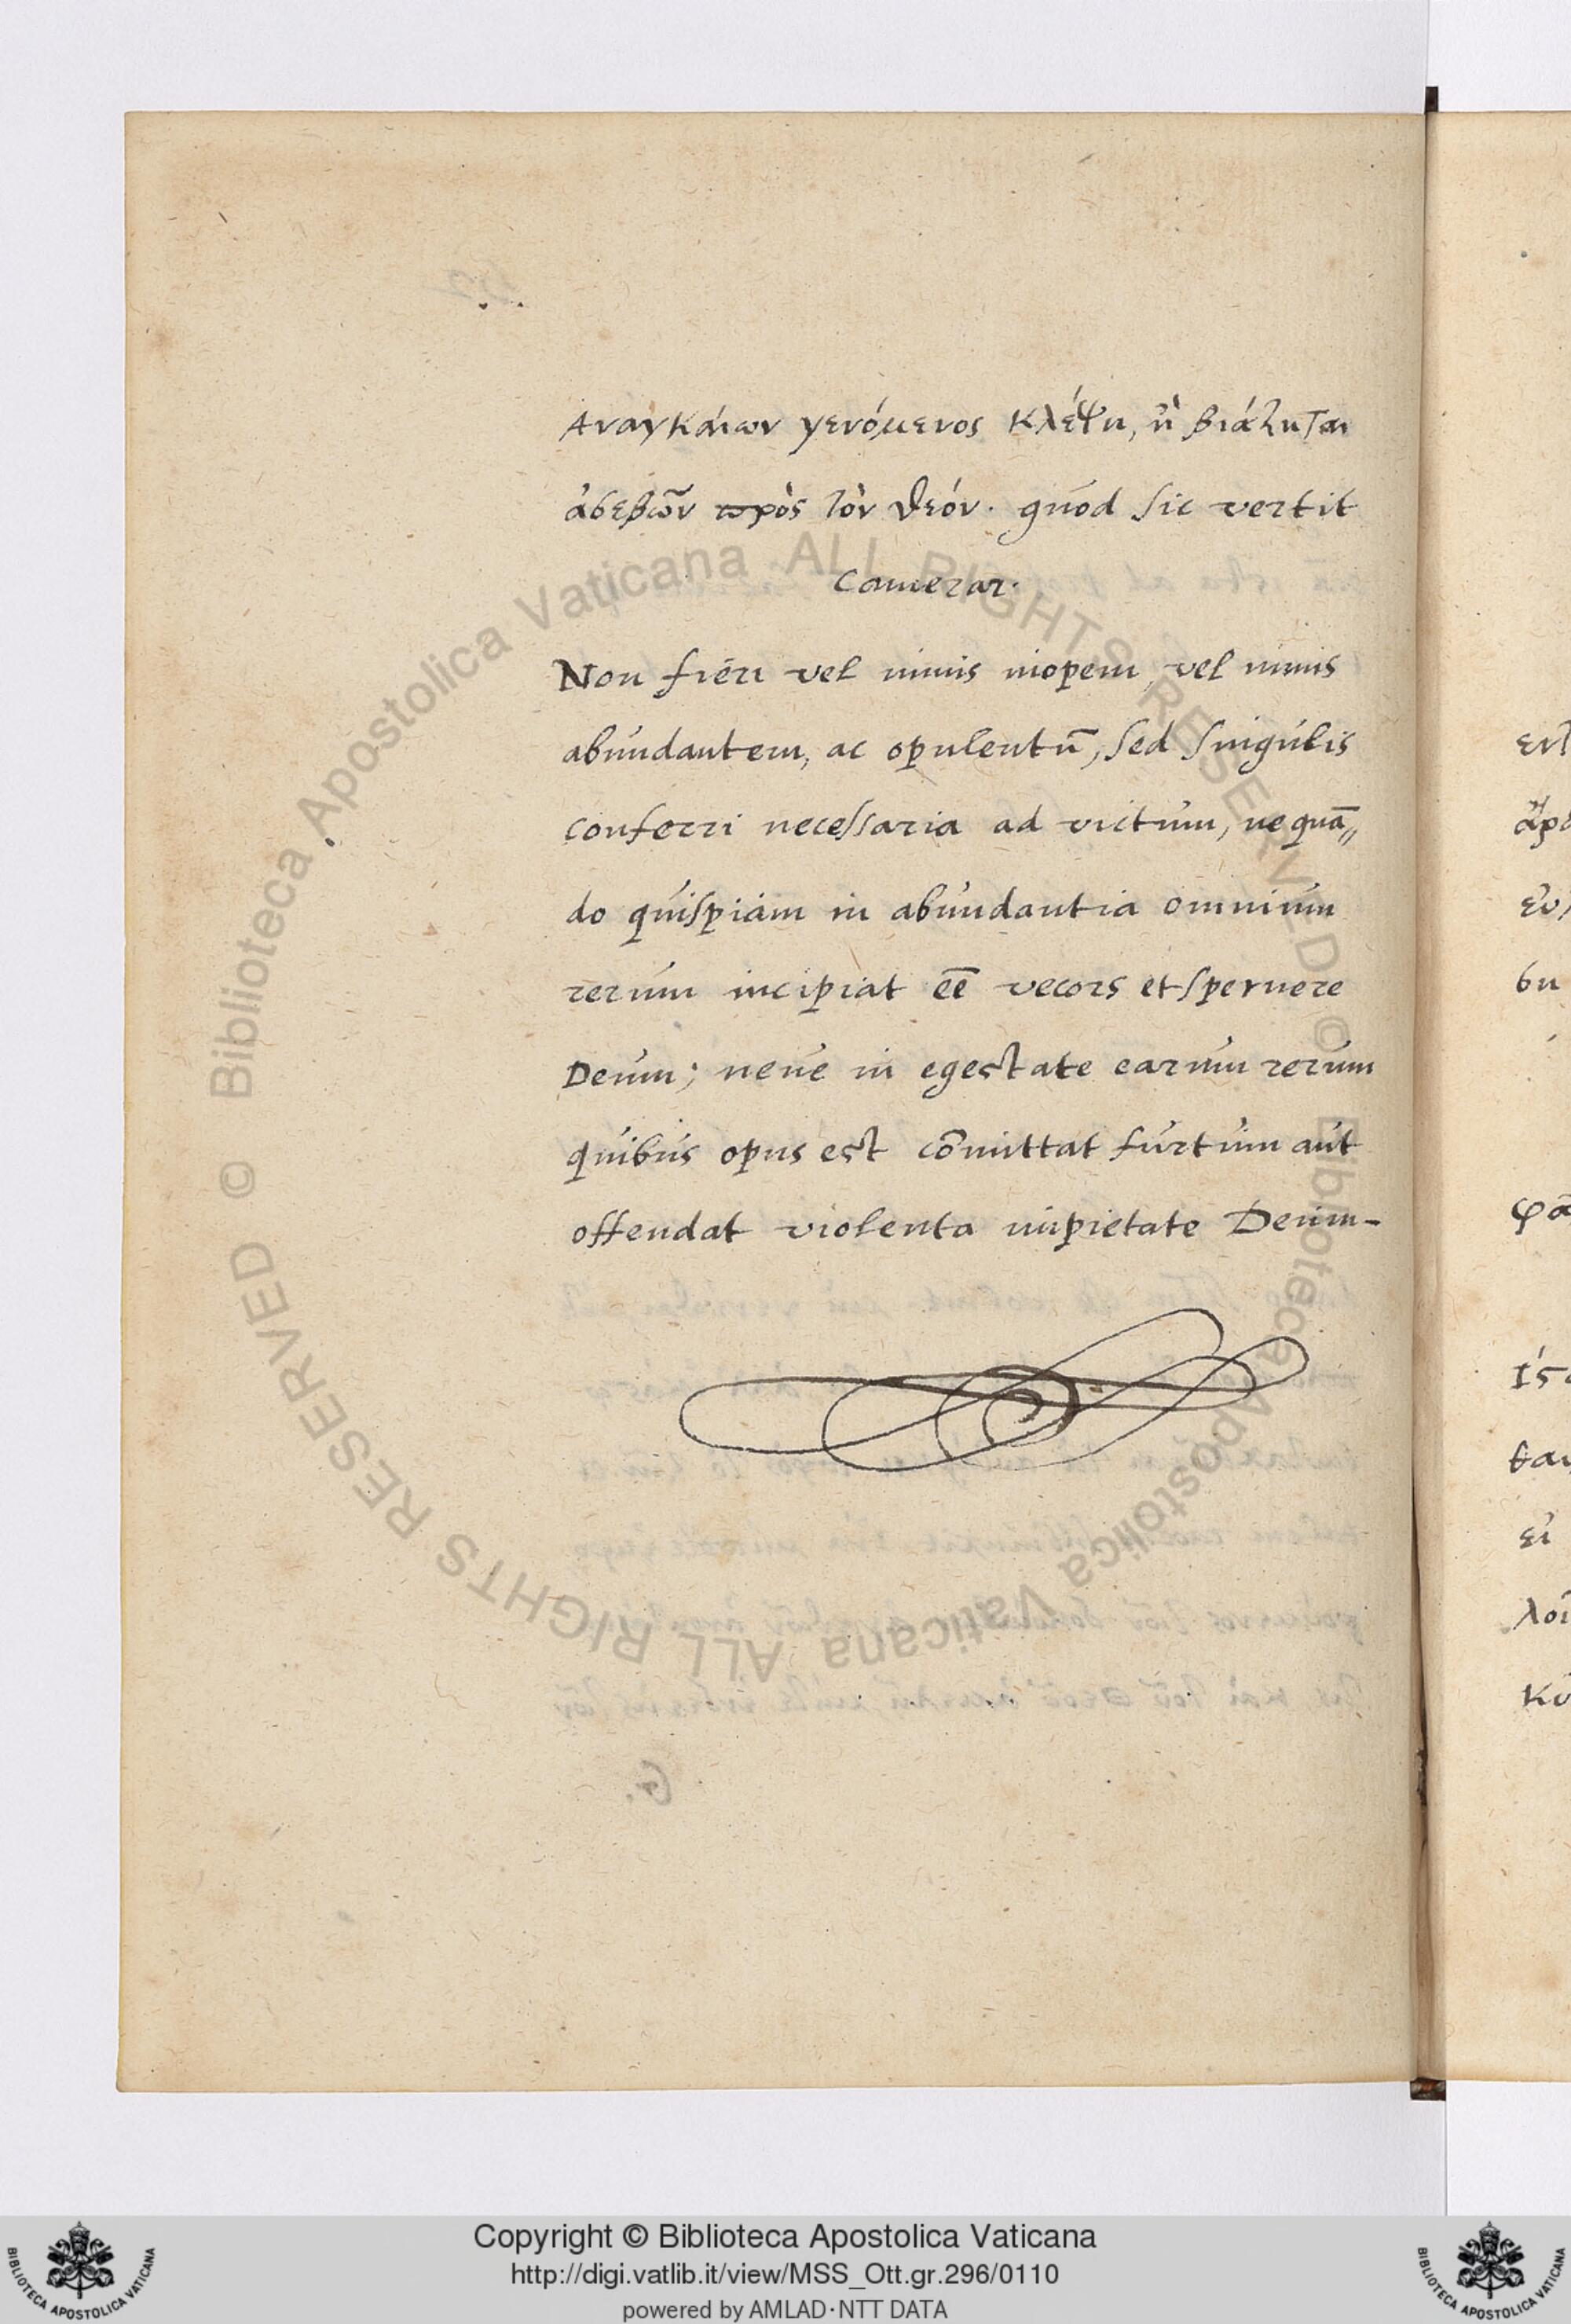 Αναγκάιων γενόμενος κλέψη, ἢ βιάζηται
ἀσεβῶν πρὸς τὸν θεόν. quod sic vertit
Camerar.
Non fieri vel nimis inopem, vel nimis
abundantem, ac opulentū, sed singulis
conferri necessaria ad victum, ne quā„
do quispiam in abundantia omnium
rerum incipiat eē vecors et spernere
Deum; neue in egestate earum rerum
quibus opus est cōmittat furtum aut
offendat violenta impietate Deum-
G.
Biblioteca Apostolica Vaticana ALL RIGHTS RESERVED © Biblioteca Apostolica Vaticana ALL RIGHTS RESERVED ©
Copyright © Biblioteca Apostolica Vaticana
http://digi.vatlib.it/view/MSS_Ott.gr.296/0110
powered by AMLAD·NTT DATA
BIBLIOTECA APOSTOLICA VATICANA
BIBLIOTECA APOSTOLICA VATICANA